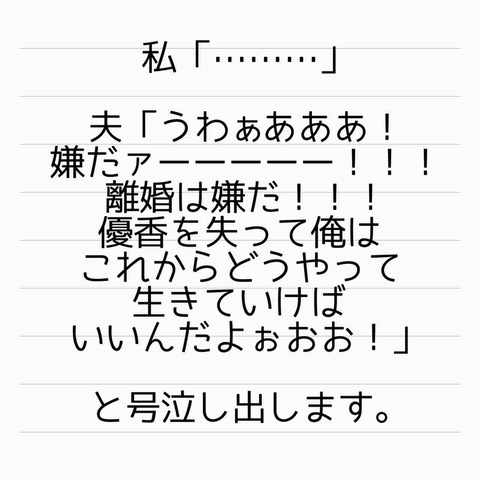 私「………」
夫「うわぁあああ！
嫌だァーーーーー！！！
離婚は嫌だ！！！
優香を失って俺は
これからどうやって
生きていけば
いいんだよぉおお！」
と号泣し出します。